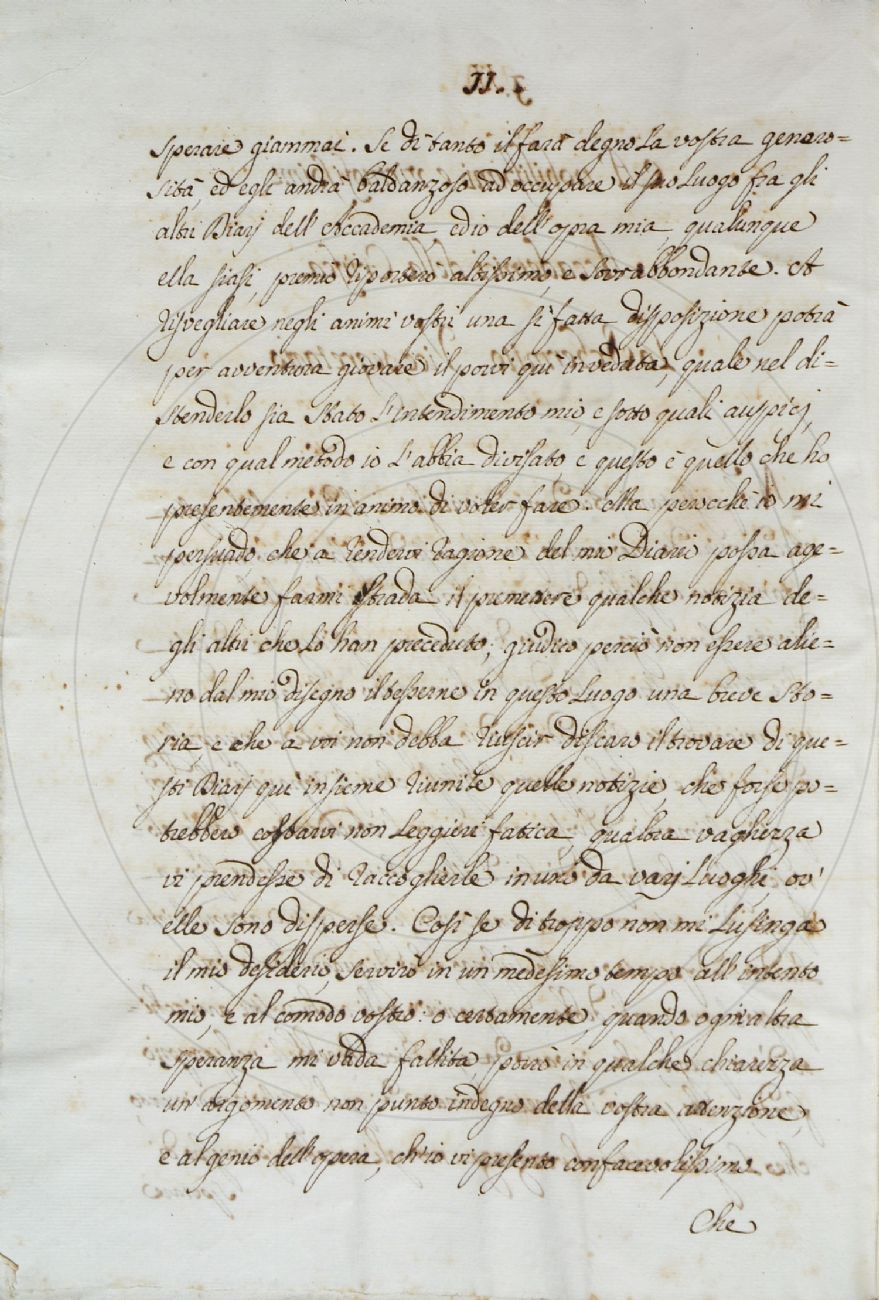 II.
sperare giammai. Se di tanto il farà degno la vostra genero=
sità, ed egli andrà baldanzoso ad occupare il suo luogo fra gli
altri Diarj dell'Accademia ed io dell'opra mia, qualunque
ella siasi, premio riporterò altissimo, e sovrabbondante. A
risvegliare negli animi vostri una sì fatta disposizione potrà
per avventura giovare il porvi qui in veduta, quale nel di=
stenderlo sia stato l'intendimento mio, e sotto quali auspicj,
e con qual metodo io l'abbia divisato, e questo è quello che ho
presentemente in animo di voler fare. Ma perocchè io mi
persuado che a rendervi ragione del mio Diario possa age=
volmente farmi strada il premettere qualche notizia de=
gli altri che lo han preceduto; giudico perciò non essere alie=
no dal mio disegno il tesserne in questo luogo una breve sto=
ria, e che a voi non debba riuscir discaro il trovare di que=
sti Diarj quì insieme riunite quelle notizie, che forse po=
trebbero costarvi non leggieri fatica, qualora vaghezza
vi prendesse di raccoglierle in uno da varj luoghi, ov'
elle sono disperse. Così se di troppo non mi lusinga
il mio desiderio, servirò in un medesimo tempo all'intento
mio, e al comodo vostro: o certamente, quando ogni altra
speranza mi vada fallita porrò in qualche chiarezza
un argomento non punto indegno della vostra attenzione,
e al genio dell'opera, ch'io vi presento confacevolissimo.
Che